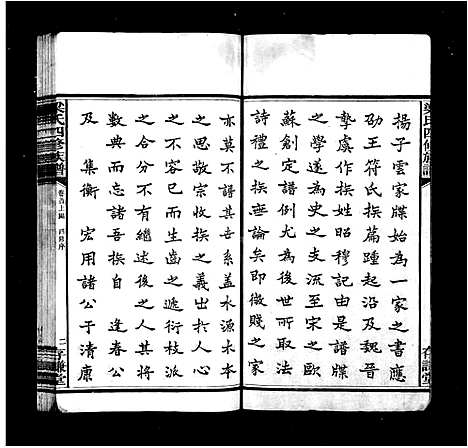 揚子雲家牒始為一家之書應
劭王符氏族篇踵起沿及魏晉
摯虞作族姓昭穆記由是譜牒
之學遂為史之支流至宋之歐
蘇創定譜例尤為後世所取法
詩禮之族無論矣即微賤之家
亦莫不詳其世系蓋水源木本
之思敬宗收族之義出於人心
不容已而生齒之遞衍枝派
之分不有繼述後之人其將
數典而忘諸吾族自 逢春公
及 集衡 宏用諸公于清康
梁氏四修族譜
卷首上編 四修序
二